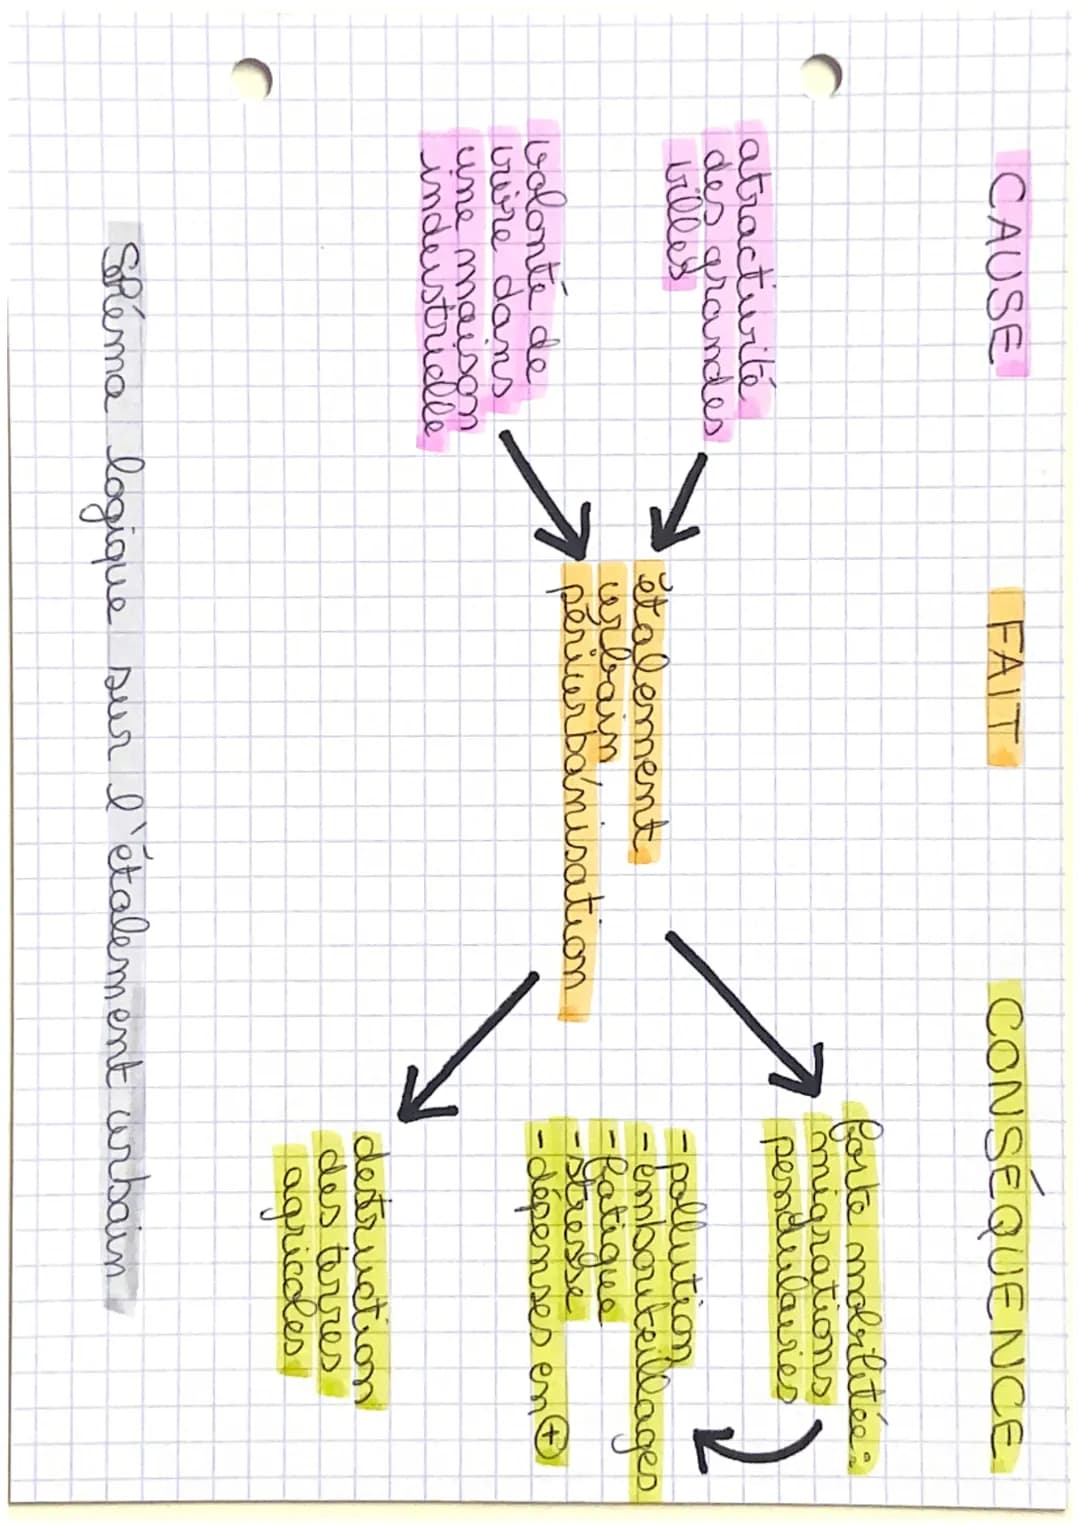 CAUSE
FAIT
CONSÉQUENCE
atractivité
des grandes
villes
volonté de
vivre dans
une maison
industrielle
étalement
urbain
périurbanisation
forte mobilitée :
migrations
pendulaires
- pollution
- embouteillages
- fatigue
- stresse
- dépenses en +
destruction
des terres
agricoles
Shéma logique sur l'étalement urbain